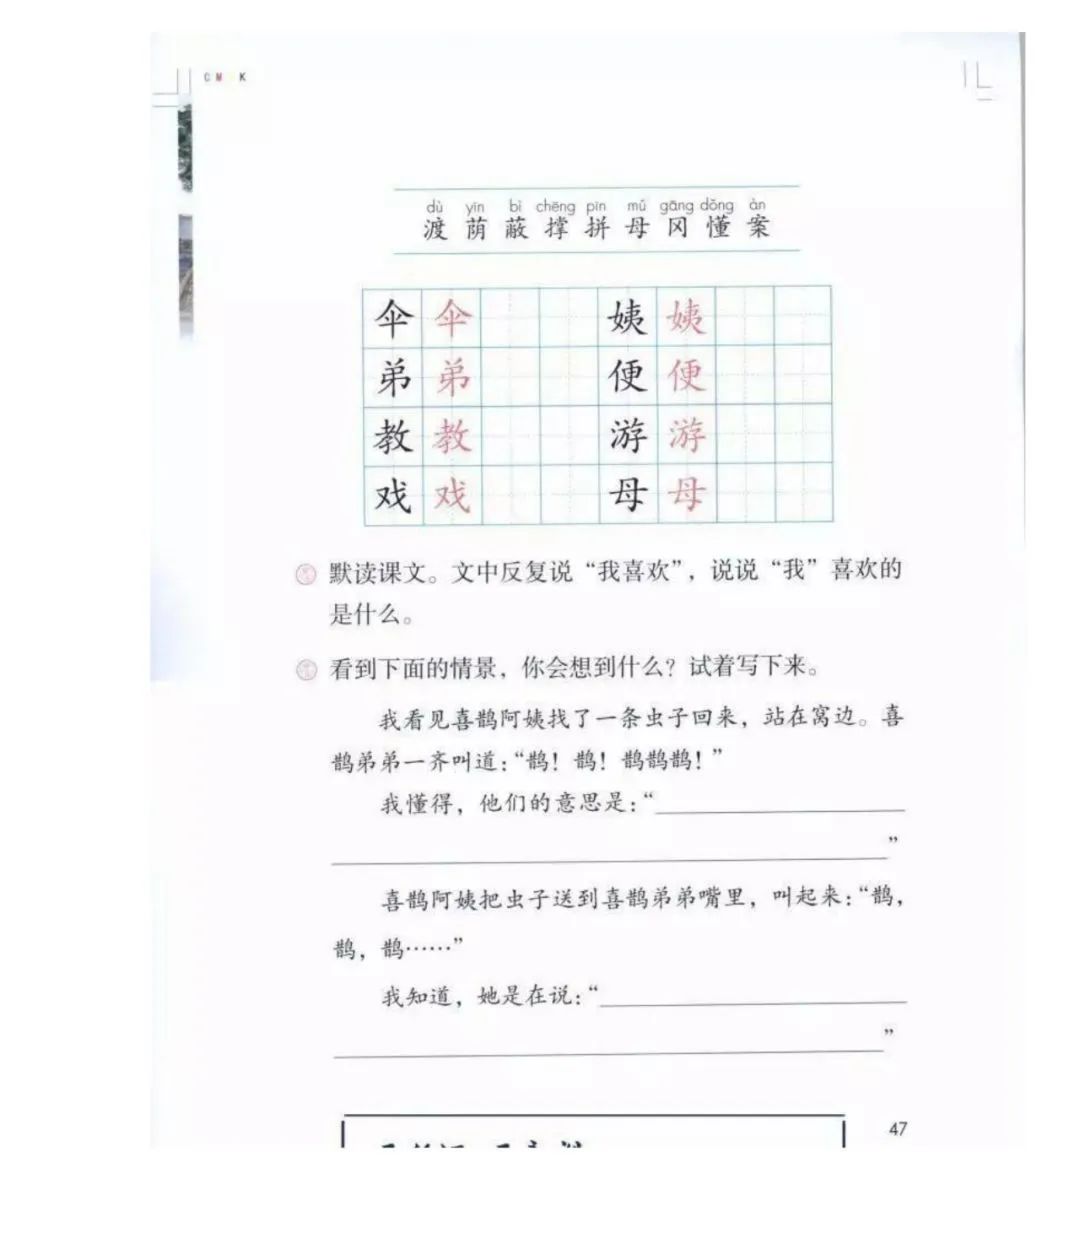 C M K
dù yīn bì chēng pīn mǔ gāng dǒng àn
渡 荫 蔽 撑 拼 母 冈 懂 案
伞 伞 姨 姨
弟 弟 便 便
教 教 游 游
戏 戏 母 母
默读课文。文中反复说“我喜欢”，说说“我”喜欢的
是什么。
看到下面的情景，你会想到什么？试着写下来。
我看见喜鹊阿姨找了一条虫子回来，站在窝边。喜
鹊弟弟一齐叫道：“鹊！鹊！鹊鹊鹊！”
我懂得，他们的意思是：“
”
喜鹊阿姨把虫子送到喜鹊弟弟嘴里，叫起来：“鹊，
鹊，鹊……”
我知道，她是在说：“
”
47